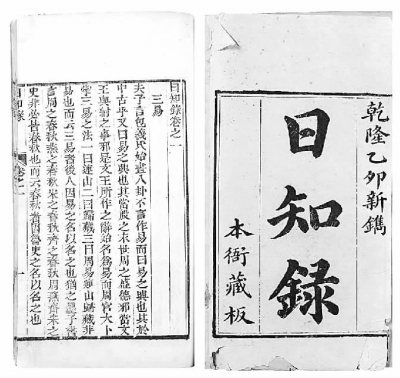 乾隆乙卯新鐫
日知錄
本衙藏板
日知錄卷之一
三易
夫子言包羲氏始畫八卦不言作易而曰易之興也其於
中古乎又曰易之興也其當殷之末世周之盛德邪當文
王與紂之事邪是文王所作之辭始名為易而周官大卜
掌三易之法一曰連山二曰歸藏三曰周易連山歸藏非
易也而云三易者後人因易之名以名之也猶之墨子書
言周之春秋燕之春秋宋之春秋齊之春秋周燕齊宋之
史非必皆春秋也而云春秋者因魯史之名以名之也
日知錄 卷之一